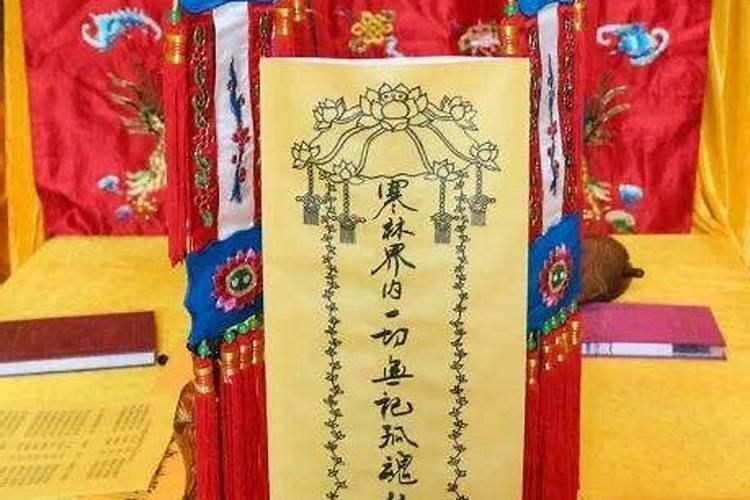 寒林界内一切無祀孤魂